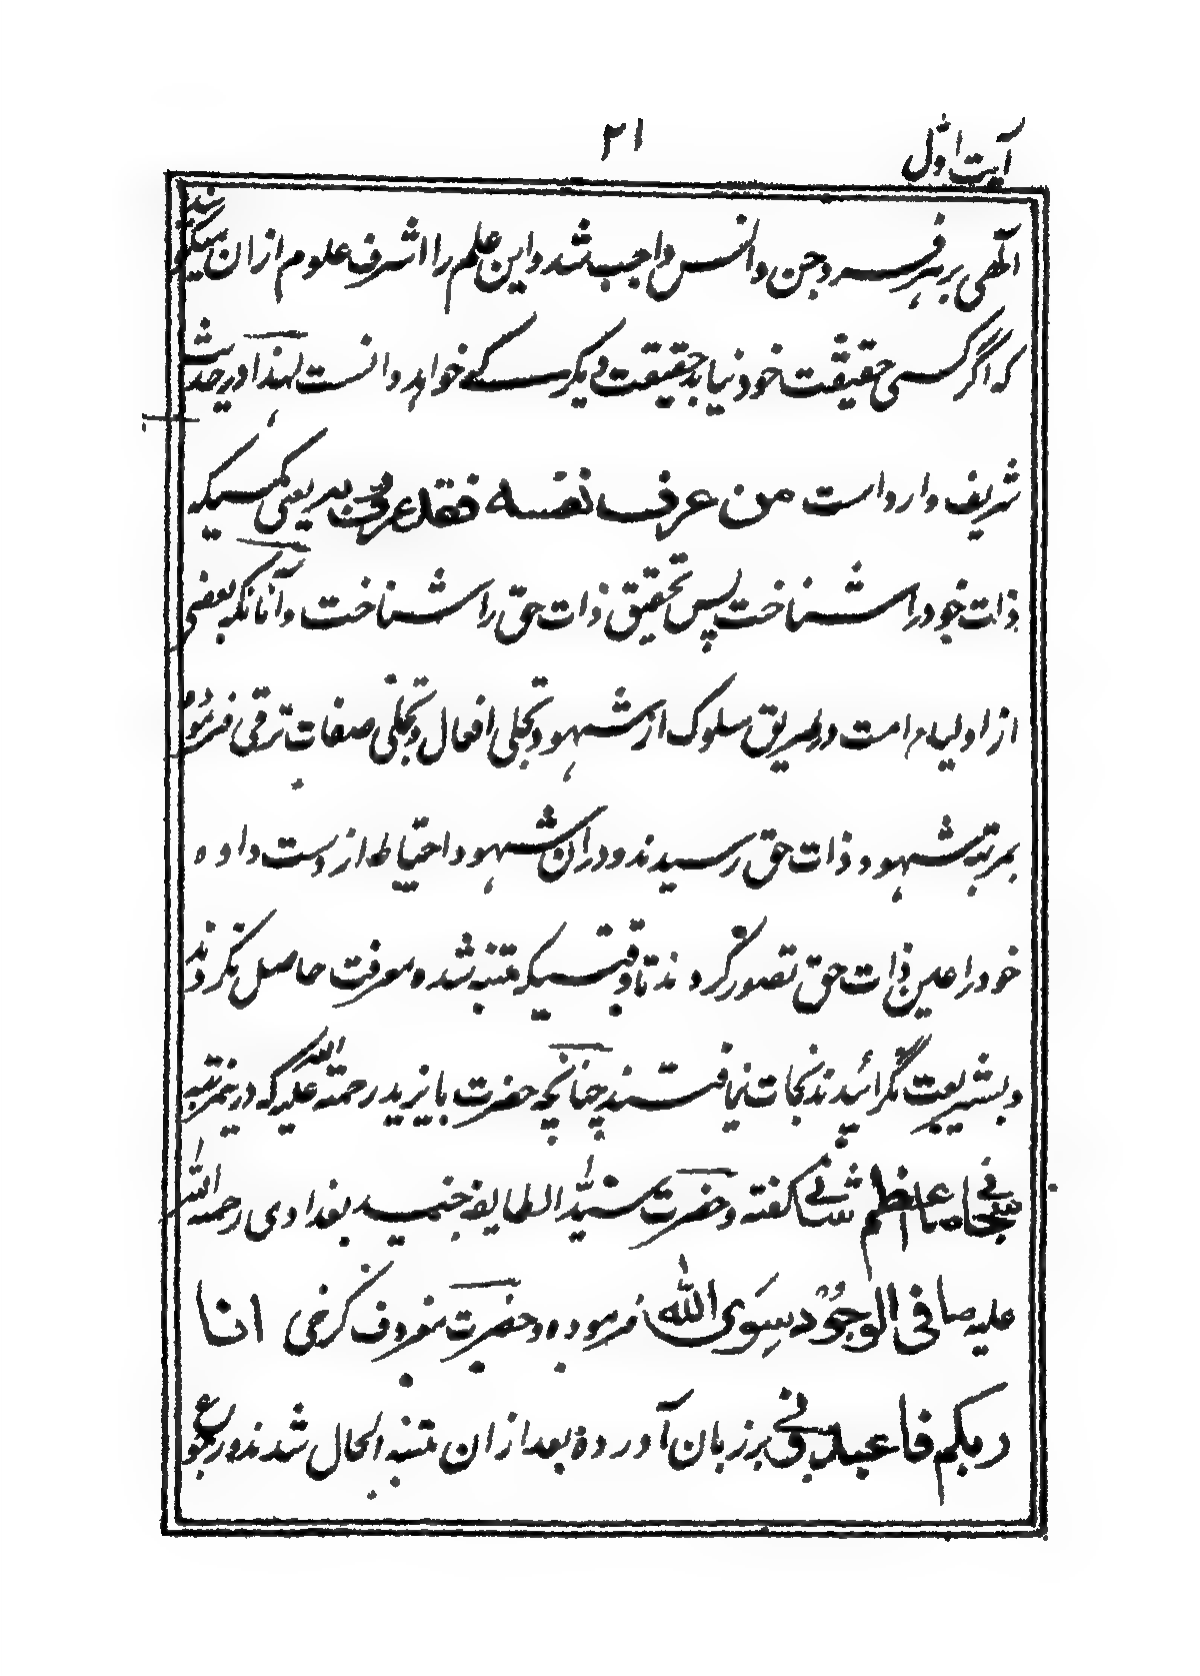 آیت اول
۲۱
الٰهی بر هر فرد جن و انس واجب شد و این علم را اشرف علوم ازان میگویند
که اگر کسی حقیقت خود نیابد حقیقت دیگر کسے خواهد دانست لهذا در حدیث
شریف وارد است من عرف نفسه فقد عرف ربه یعنی کسیکه
ذات خود را شناخت پس تحقیق ذات حق را شناخت و آنانکه بعضی
از اولیاء امت در طریق سلوک از شهود تجلی افعال و تجلی صفات ترقی فرموده
بمرتبه شهود ذات حق رسیدند و دران شهود احتیاط از دست داده
خود را عین ذات حق تصور کردند تا وقتیکه متنبه شده معرفت حاصل نکردند
و بشریعت نگرائیدند نجات نیافتند چنانچه حضرت بایزید رحمة الله علیه که درینمرتبه
سبحانی ما اعظم شانی گفته و حضرت سید الطایفه جنید بغدادی رحمة الله
علیه ما فی الوجود سوی الله فرموده و حضرت معروف کرخی انا
ربکم فاعبدونی بر زبان آورده بعد ازان متنبه الحال شدند و رجوع